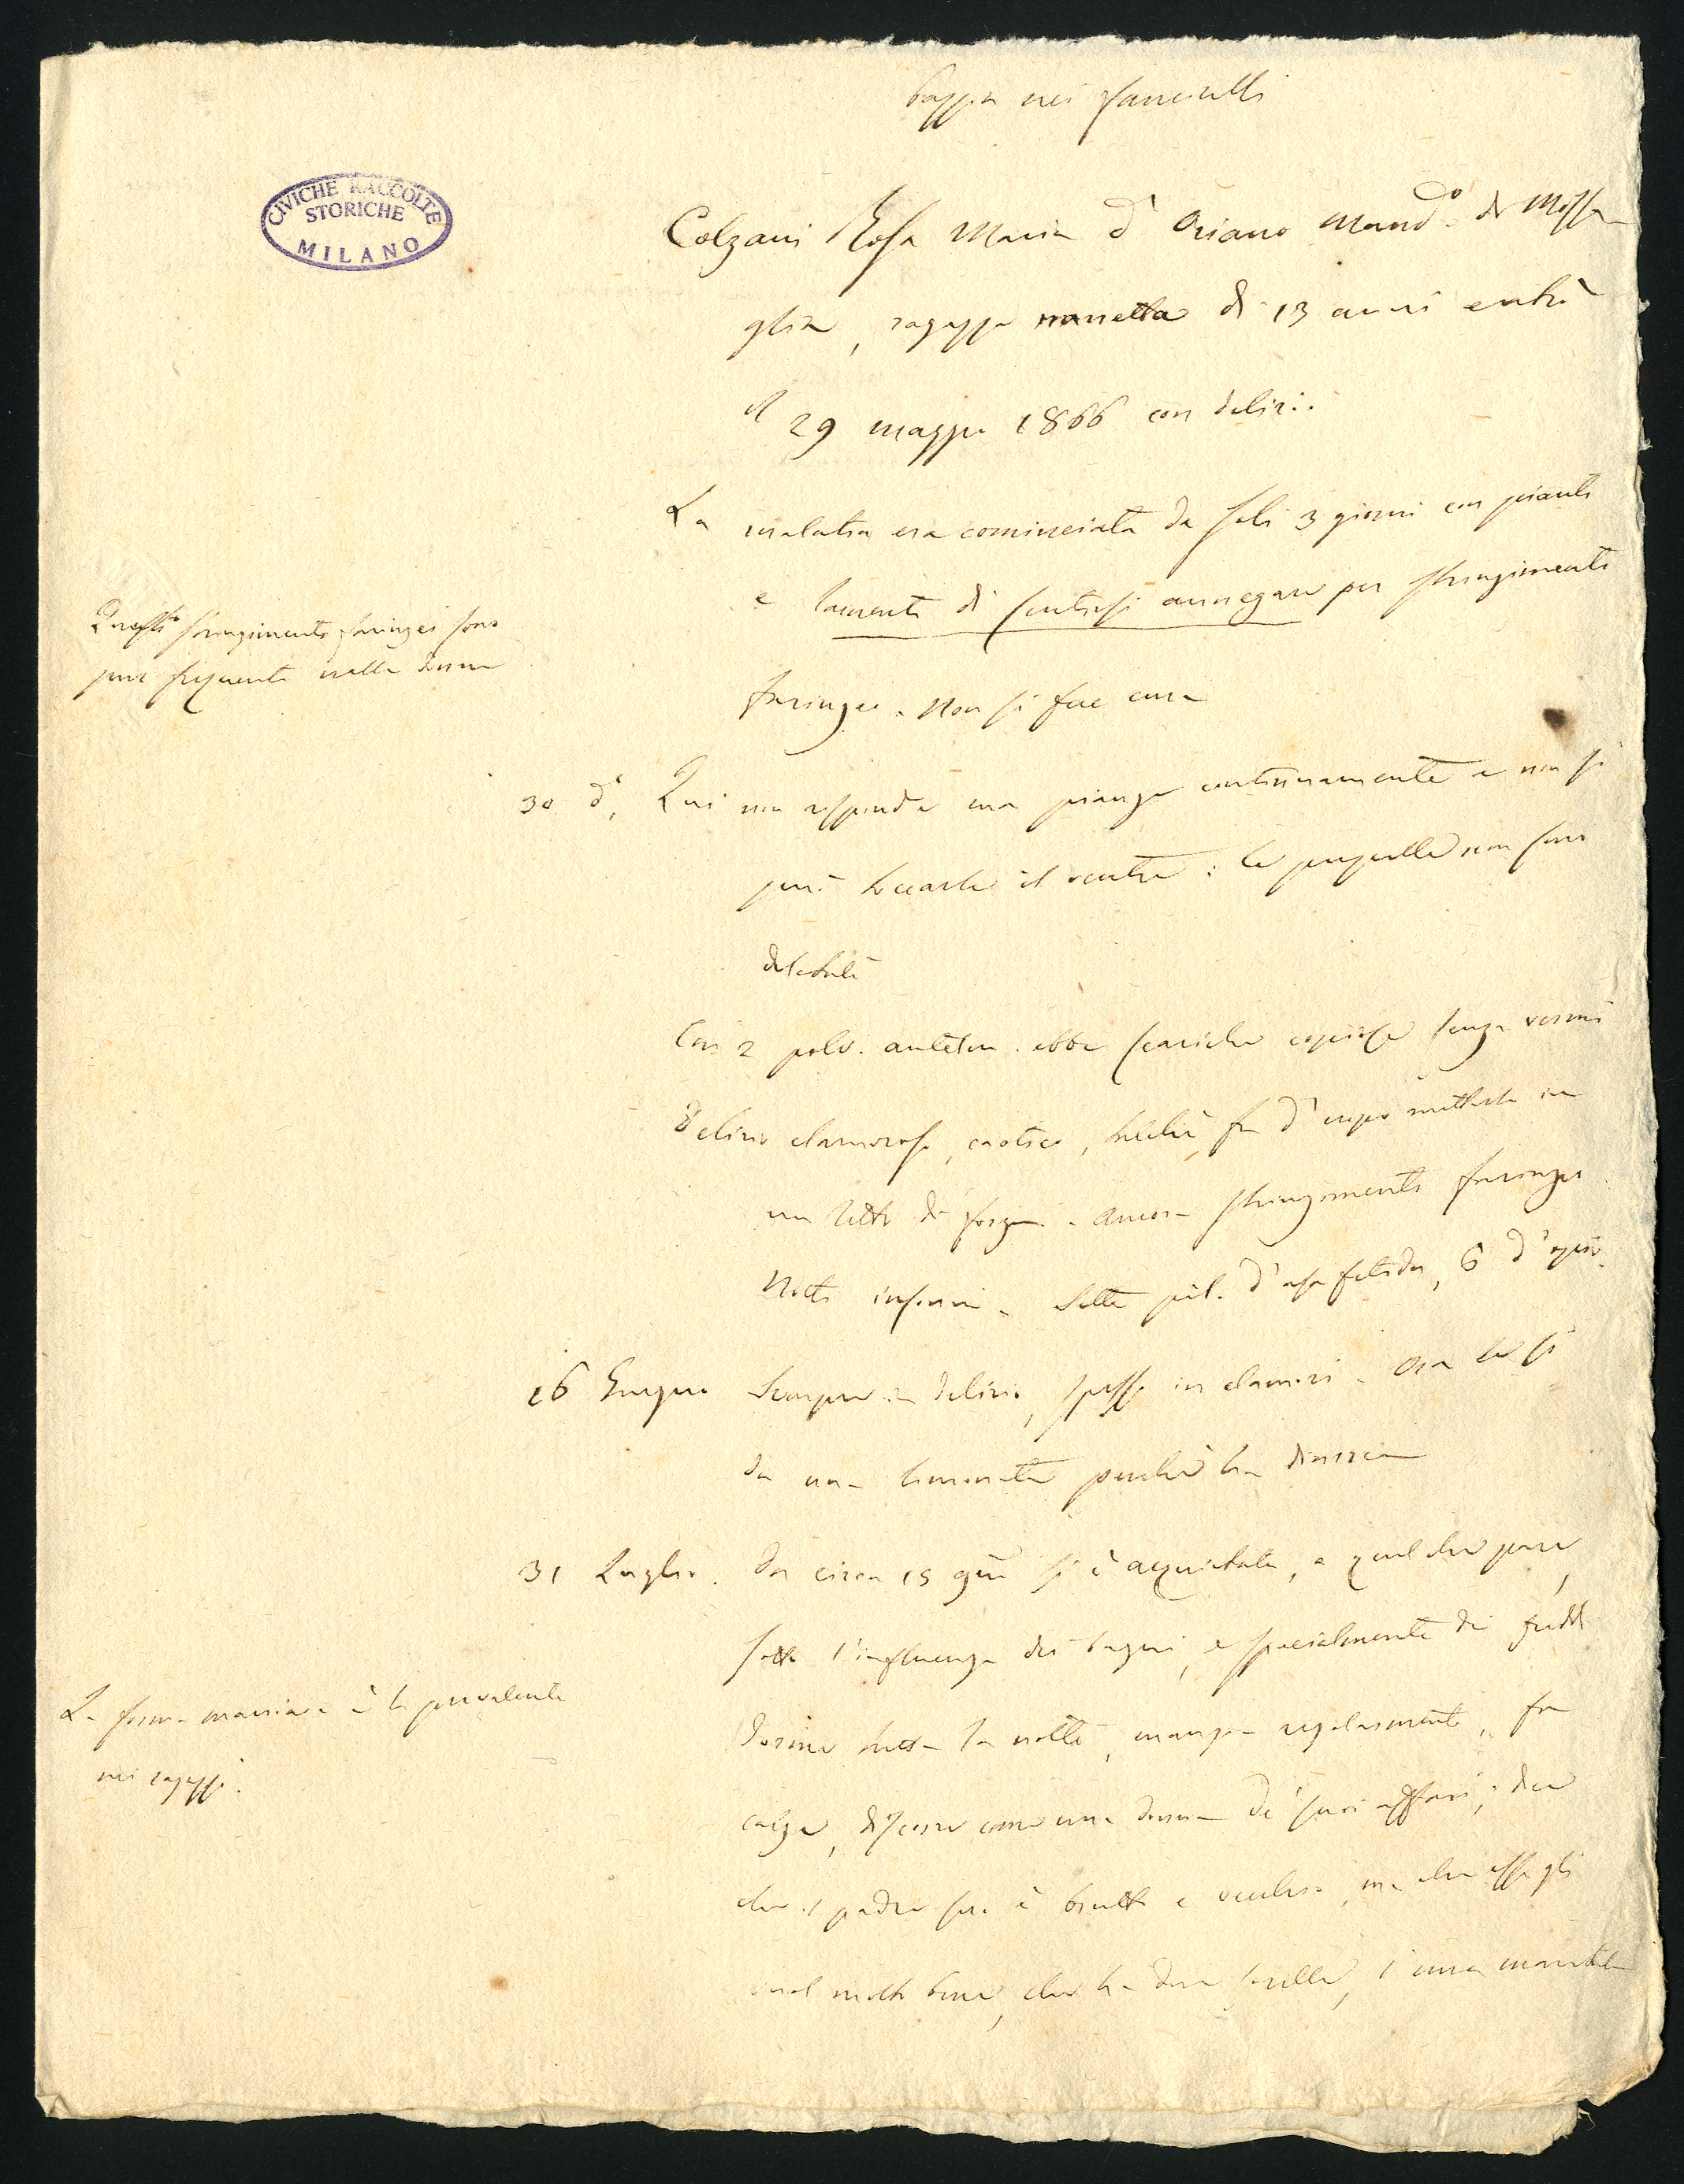 pazzia nei fanciulli
CIVICHE RACCOLTE
STORICHE
MILANO
Colzani Rosa Maria d' Oriano Mand.o di Missa
glia, ragazza nanetta di 13 anni entrò
il 29 maggio 1866 con delirio.
La malatia era cominciata da soli 3 giorni con pianti
e lamenti di sentirsi annegare per stringimento
faringeo. Non si fece cura
Questi stringimenti faringei sono
pure frequenti nelle donne
30 do, Qui non risponde ma piange continuamente e non si
può toccarle il ventre: le pupille non sono
dilatate
Con 2 polv. antelm. ebbe scariche copiose senza vermi
Delirio clamoroso, caotico, sicchè fu d'uopo metterla in
un letto di forza. ancora stringimento faringeo
Notti insonni. Sette pil. d'assa fetida, 6 d'oppio.
16 Giugno Sempre in delirio, spesso in clamori. Ora le si
dà una limonata perchè ha diarrea
31 Luglio. Da circa 15 gni si è acquietata, e quel che pare,
sotto l'influenza dei bagni, e specialmente dei freddi
Dorme tutta la notte, mangia regolarmente, fa
calze, discorre come una donna de' suoi affari; dice
che il padre suo è brutto e vecchio, ma che essa gli
vuol molto bene, che ha due sorelle, 1 una maritata
La forma maniaca è la prevalente
nei ragazzi.